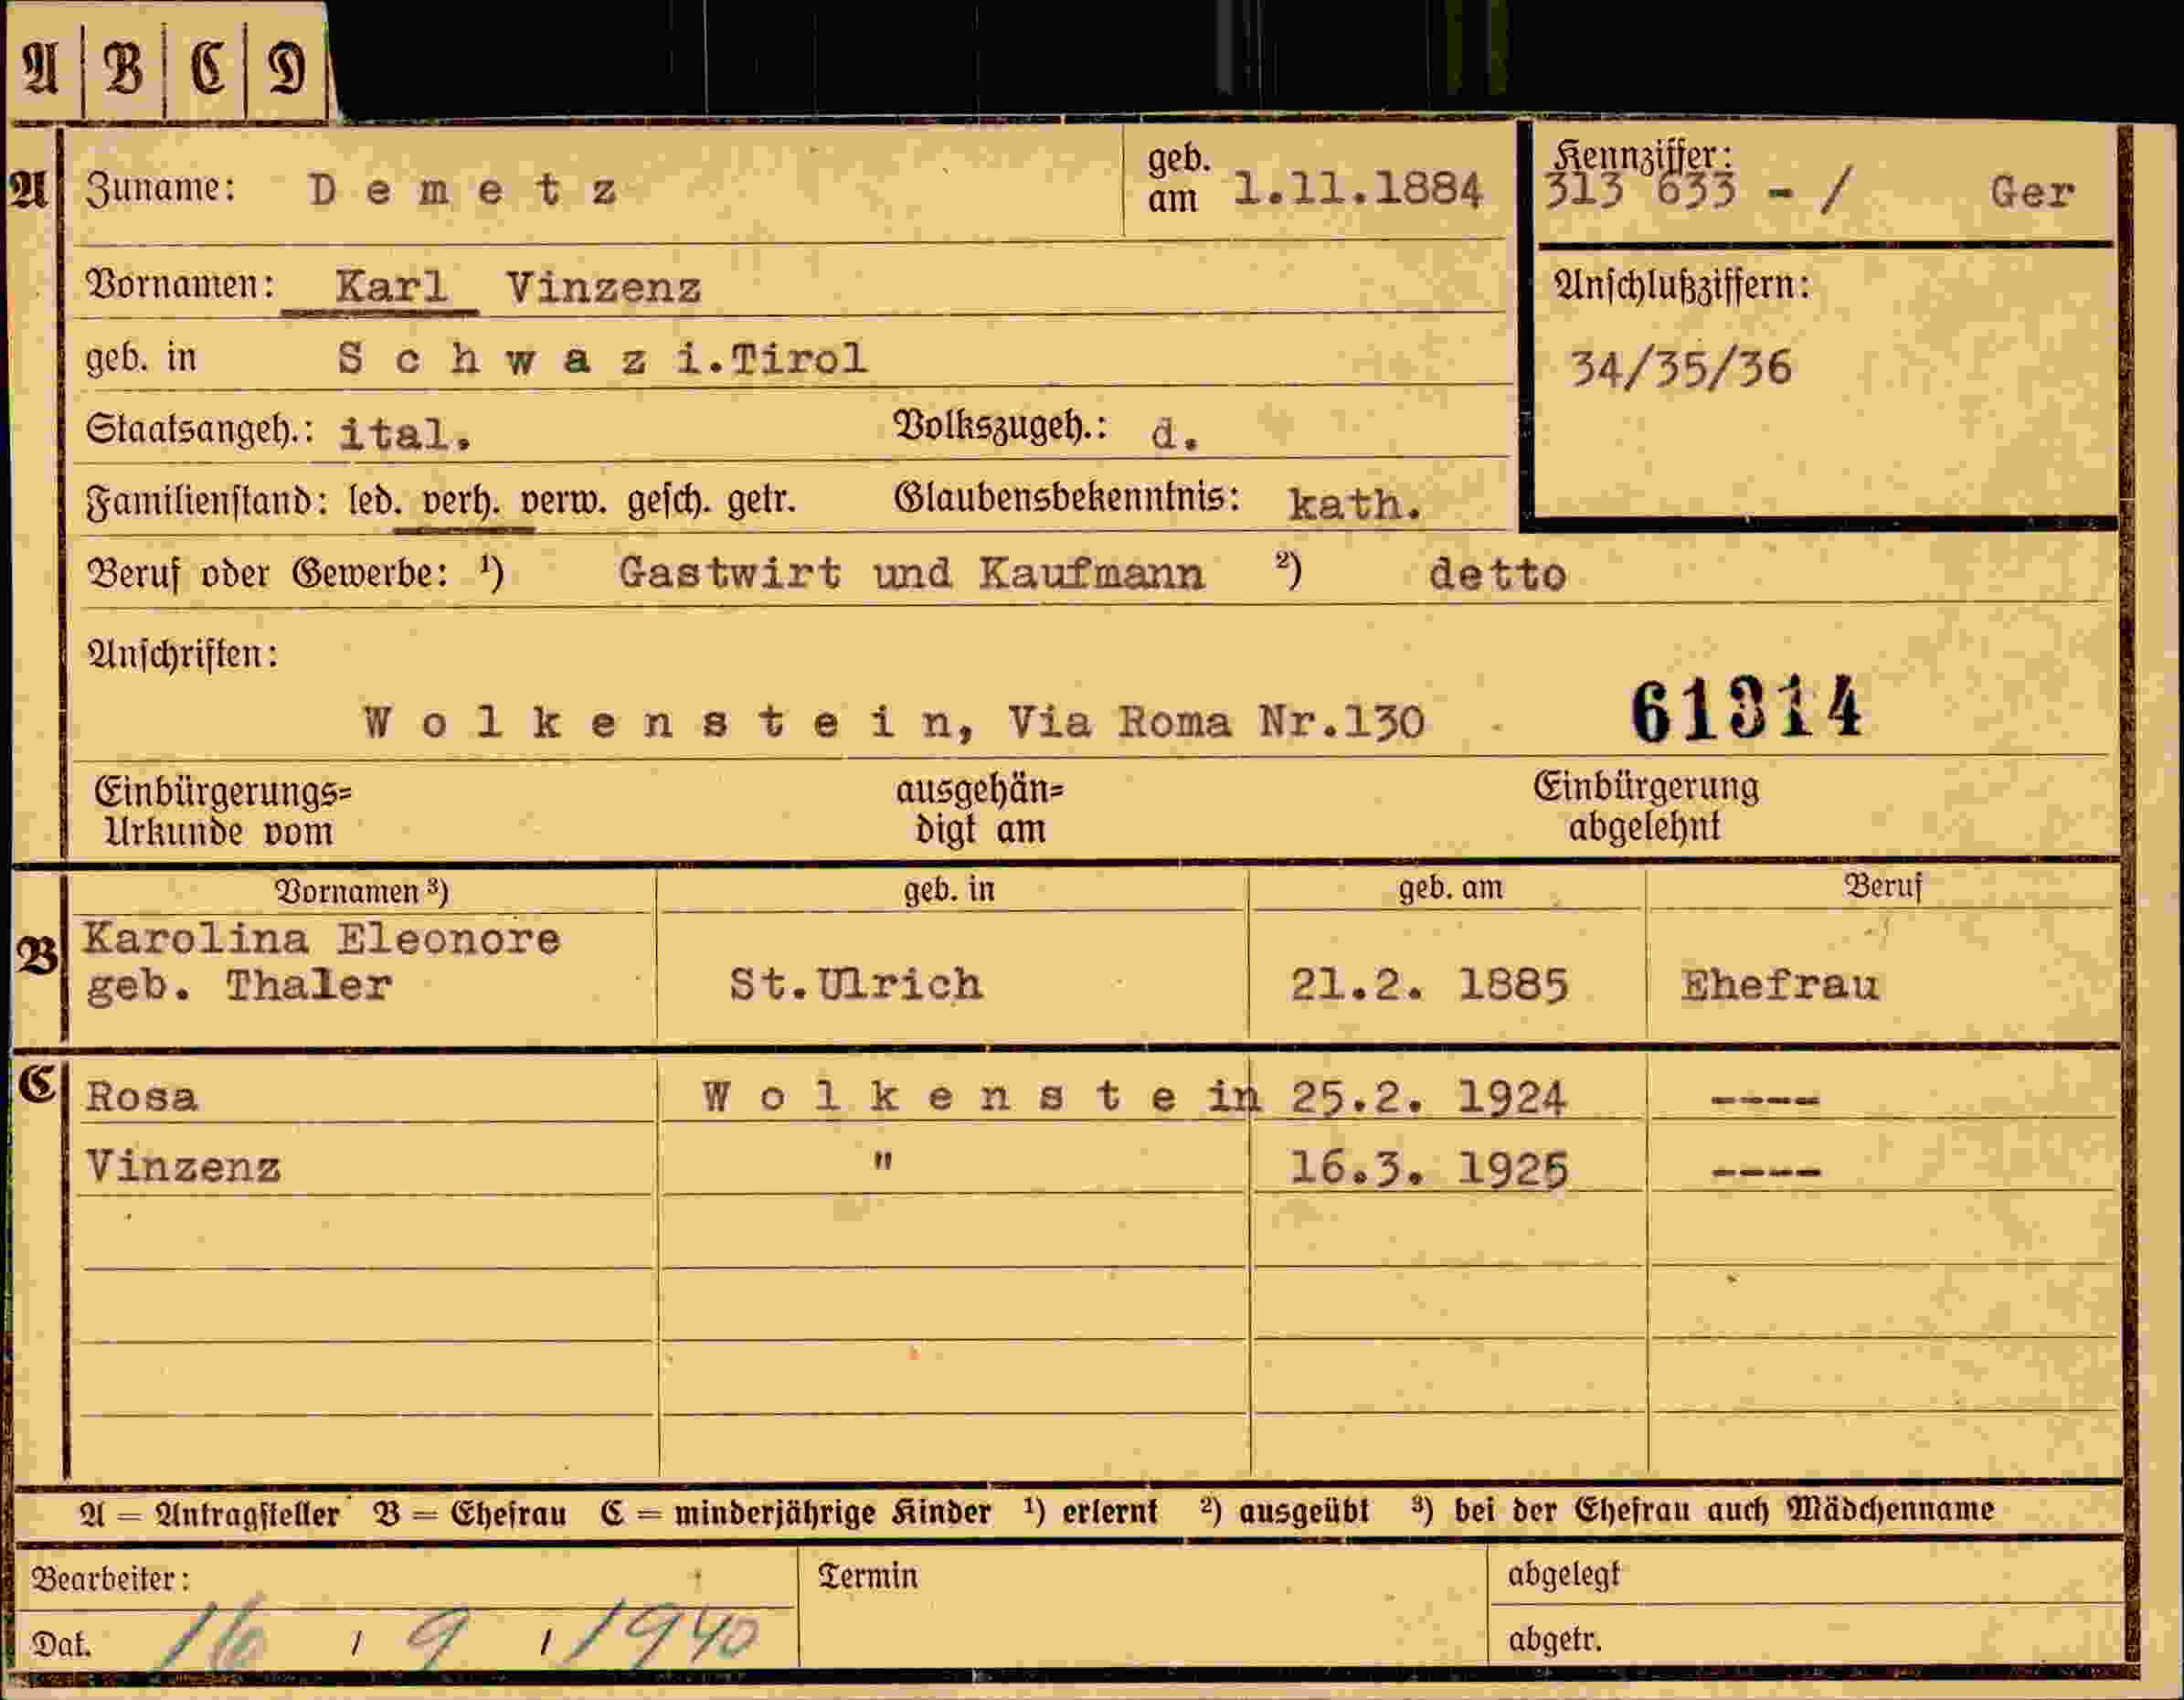 A | B | C | D
A Zuname: D e m e t z geb. am 1.11.1884
Kennziffer: 313 633 - / Ger
Vornamen: Karl Vinzenz
Anschlußziffern:
geb. in S c h w a z i.Tirol
34/35/36
Staatsangeh.: ital. Volkszugeh.: d.
Familienstand: led. verh. verw. gesch. getr. Glaubensbekenntnis: kath.
Beruf oder Gewerbe: ¹) Gastwirt und Kaufmann ²) detto
Anschriften:
W o l k e n s t e i n, Via Roma Nr.130 61314
Einbürgerungs= ausgehän= Einbürgerung
Urkunde vom digt am abgelehnt
Vornamen ³) geb. in geb. am Beruf
B Karolina Eleonore
geb. Thaler St.Ulrich 21.2. 1885 Ehefrau
C Rosa W o l k e n s t e in 25.2. 1924 ----
Vinzenz " 16.3. 1925 ----
A = Antragsteller B = Ehefrau C = minderjährige Kinder ¹) erlernt ²) ausgeübt ³) bei der Ehefrau auch Mädchenname
Bearbeiter: Termin abgelegt
Dat. 16 / 9 / 1940 abgetr.